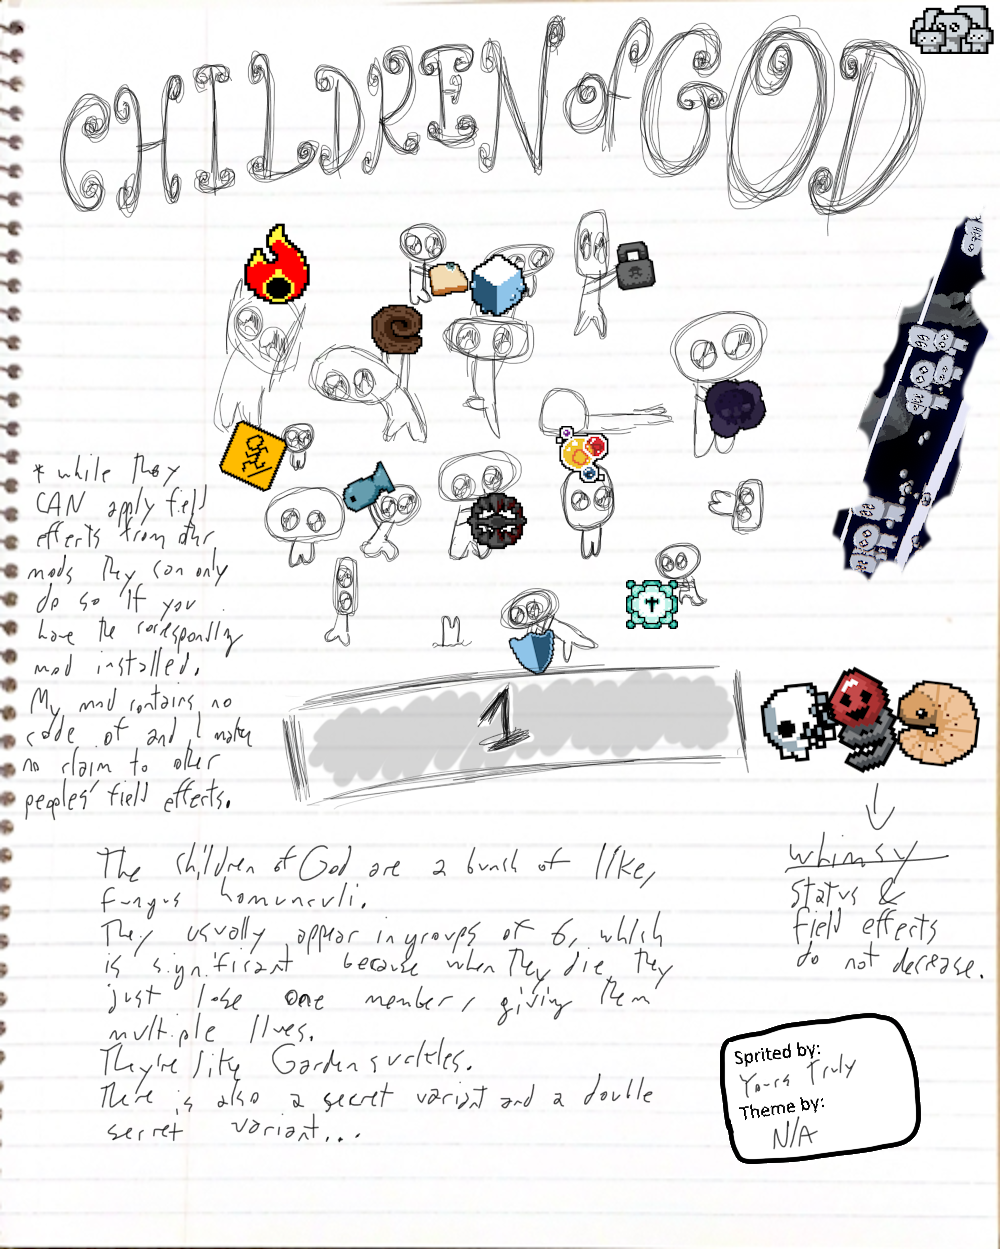 CHILDREN of GOD
* while they
CAN apply field
effects from other
mods they can only
do so if you
have the corresponding
mod installed.
My mod contains no
code of and I make
no claim to other
peoples' field effects.
1
whimsy
Status &
field effects
do not decrease.
The children of God are a bunch of like,
fungus homunculi.
They usually appear in groups of 6, which
is significant because when they die, they
just lose one member, giving them
multiple lives.
They're like Gardensuckles.
There is also a secret variant and a double
secret variant...
Sprited by:
Yours Truly
Theme by:
N/A